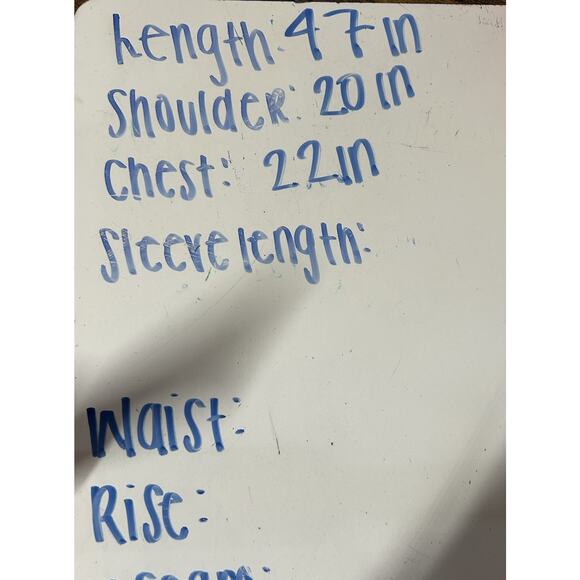 Length: 47in
Shoulder: 20in
Chest: 22in
Sleeve length:
Waist:
Rise: